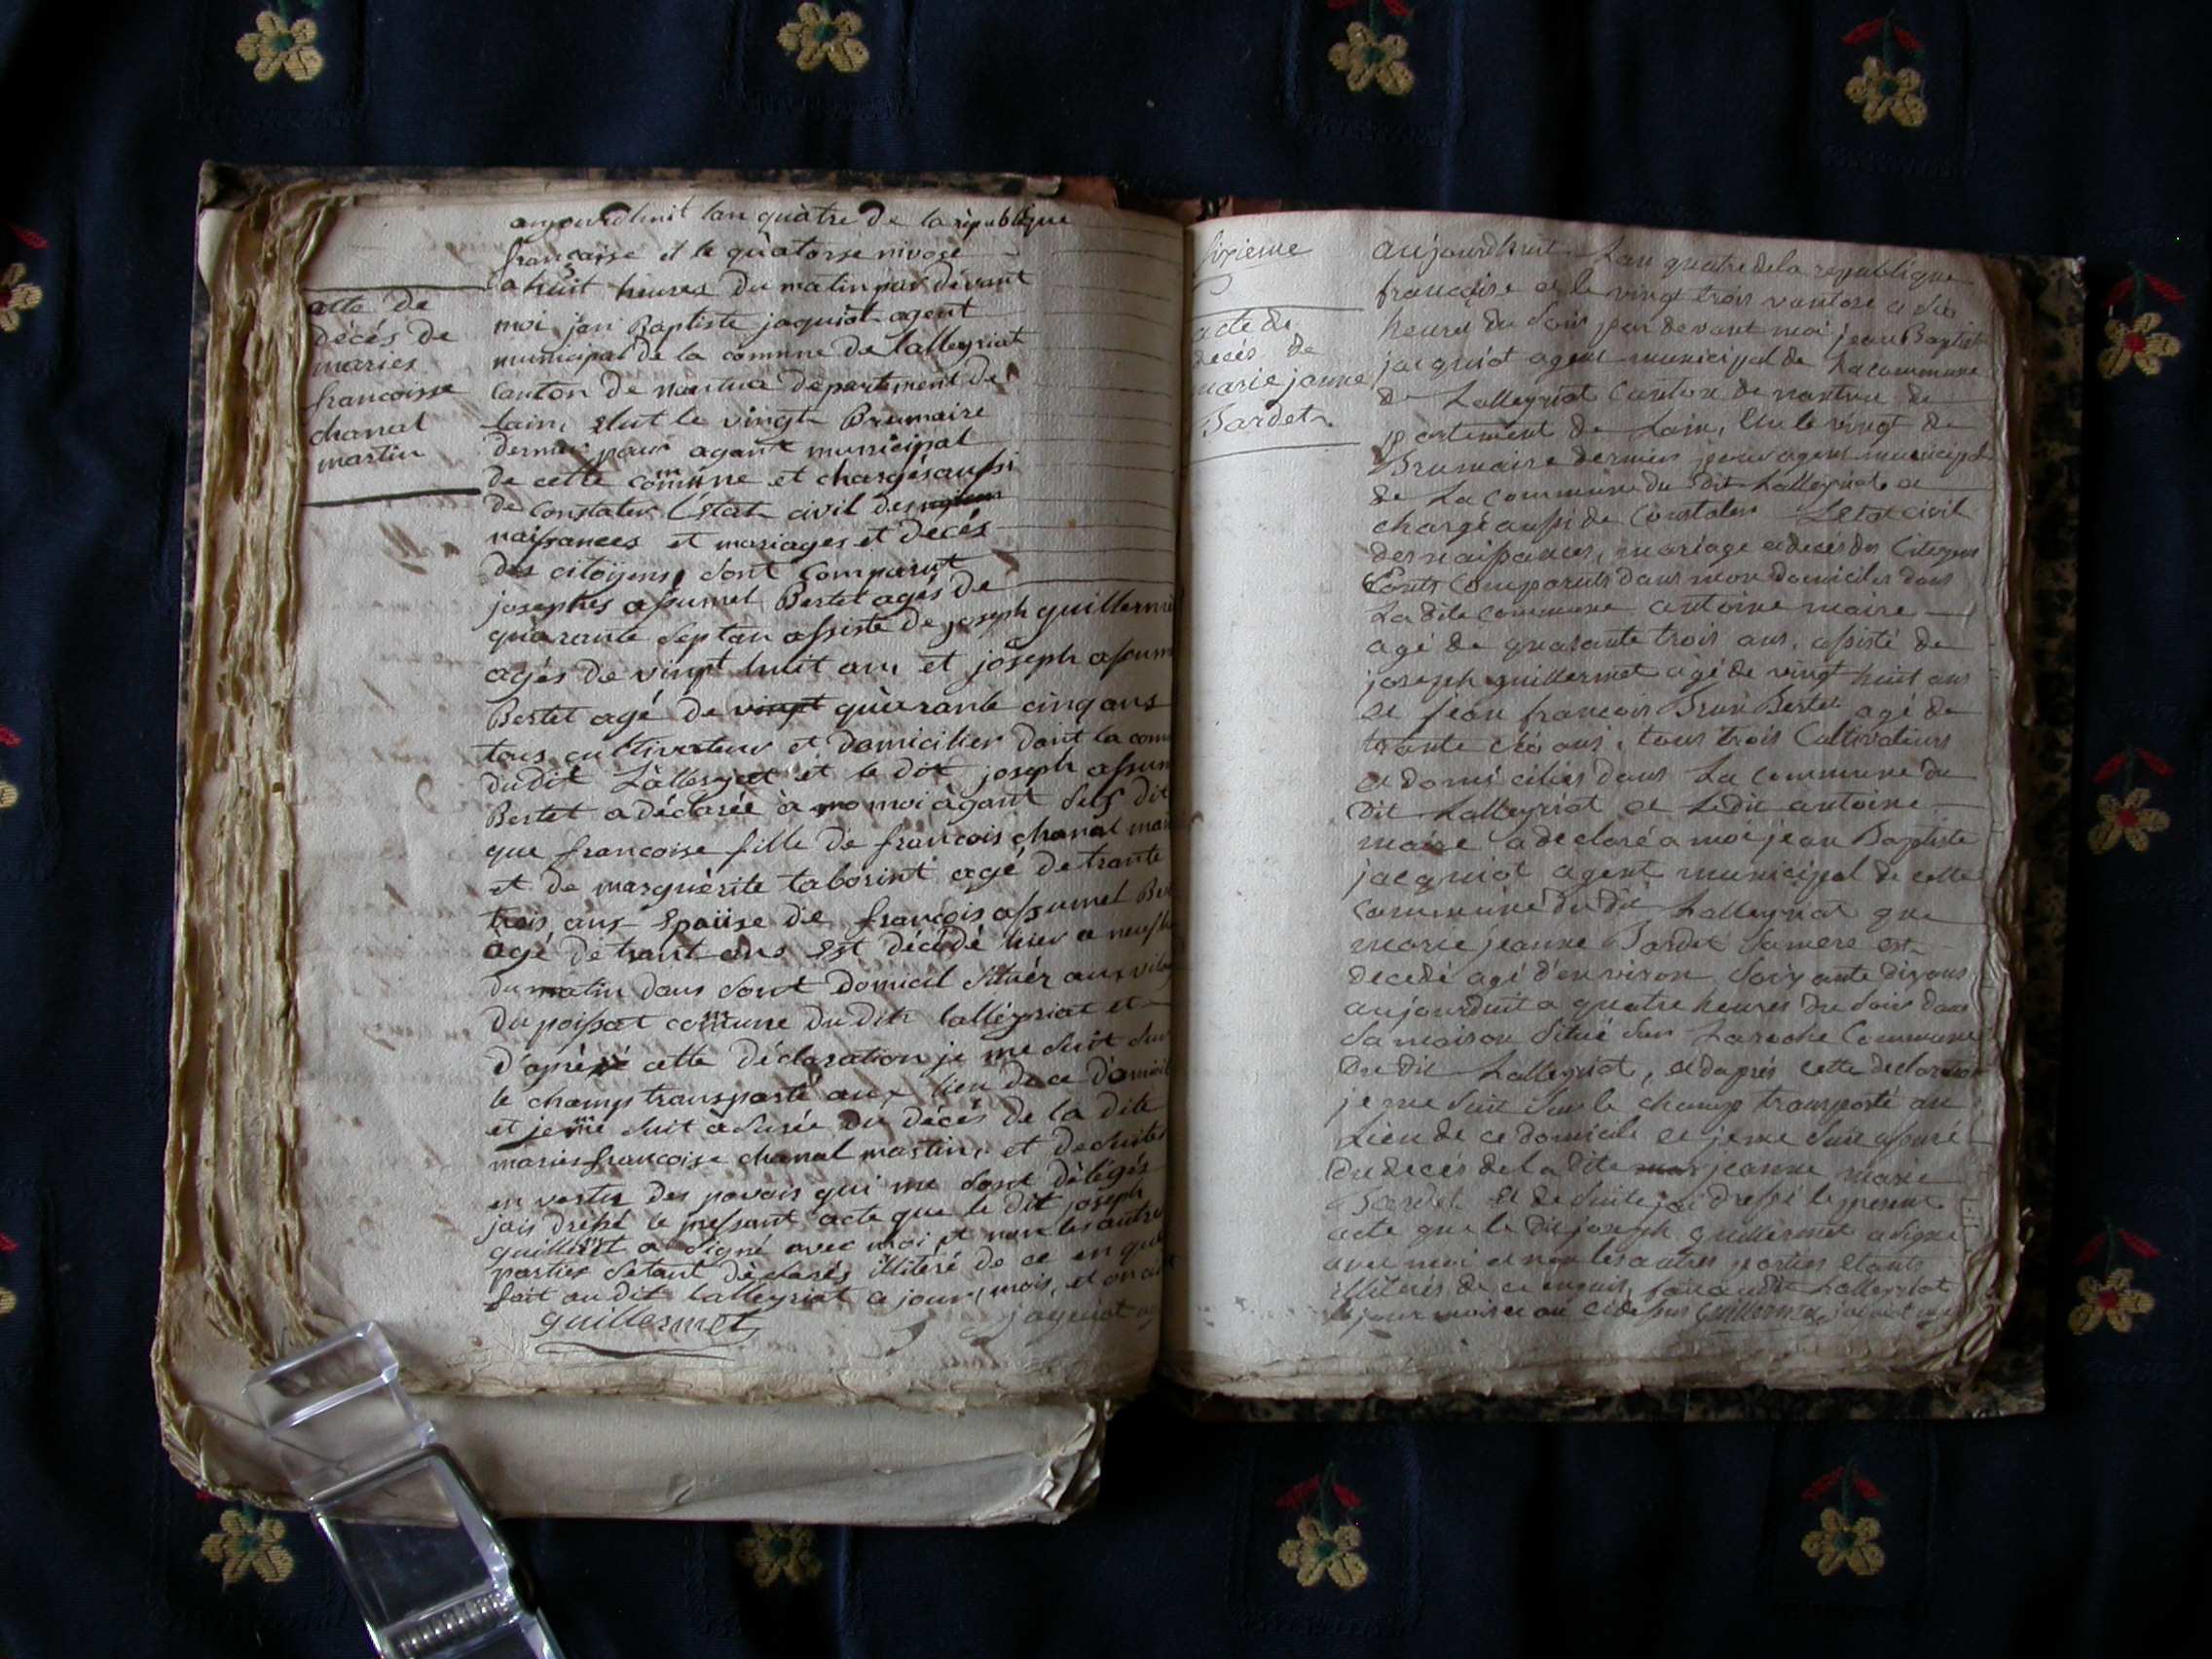 acte de
décés de
maries
francoisse
chanal
martin
aujourdhuit lan quàtre de la rèpublique
francaisse et le quàtorse nivose
a huit heures du matin par dévant
moi jean Baptiste jaquiot agent
municipal de la comune de lalleyriat
canton de nantua département de
lain, élut le vingt Brumaire
dernier pour agant municipal
de cette comune et chargés aussi
de constater l'état civil des
naissances et mariages et decés
des citoÿens, sont comparut
josephes assumel Bertet agés de
quàrante sept an assisté de joseph guillerme
agés de vingt huit ans et joseph assum
Bertet agé de vingt quàrante cinq ans
tous cultivateur et domicilier dant la com
dudit Lalleyriat et le dit joseph assum
Bertet a déclarée à mo moi àgant susdit
que francoise fille de francois chanal mar
et de marguèrite taborint agé de trante
trois ans Epouse de francois assumel Ber
agé de trant ans est décédé hier a neuf h
du matin dans sont domicil situér aux vila
du poissat comune du dit lalleyriat et
d'après cette déclaration je me suit sur
le champ transporté aux lieu de ce domicil
et je me suit àsurée du décés de la dite
maries francoise chanal martin, et de suites
en vertu des povoir qui me sont délégés
jais dressé le pressant acte que le dit joseph
guillermet a signé avec moi et non les autre
parties sètant déclarés illiteré de ce en qui
fait au dit lalleyriat ce jour, mois, et an
guillermet jaquiot ag
sixieme
acte de
decés de
marie jeanne
Tardet
aujourdhuit Lan quatre dela republique
francaise et le vingt trois vantose a six
heures du soir par devant moi jean Baptiste
jacquiot agent municipal de La commune
de Lalleyriat Canton de nantua de
partement de Lain, Elu le vingt de
Brumaire dernier pour agent municipal
de La commune du dit Lalleyriat et
chargé aussi de Constater Létat civil
des naissances, mariage et decés des Citoyens
sont Comparuts dans mon domicile dans
La dite commune antoine maire
agé de quarante trois ans, assisté de
joseph guillermet agé de vingt huit ans
et jean francois Brun Bertet agé de
trante six ans, tous trois Cultivateurs
et domiciliés dans La commune du
dit Lalleyriat et Ledit antoine
maire a declaré a moi jean Baptiste
jacquiot agent municipal de cette
commune du dit Lalleyriat que
marie jeanne Tardet sa mere est
decedé agé d'environ soixante dix ans
aujourduit a quatre heures du soir dans
sa maison situé sur Laroche Commune
du dit Lalleyriat, et daprés cette declaration
je me suit sur le champ transporté au
Lieu de ce domicile et je me suit assuré
du decés de la dite jeanne marie
Tardet et de suite jai dressé le present
acte que le dit joseph guillermet a signé
avec moi et non les autres parties étants
illiterés de ce enquis, fait audit Lalleyriat
le jour mois et an cidessus Guillermet jaquiot